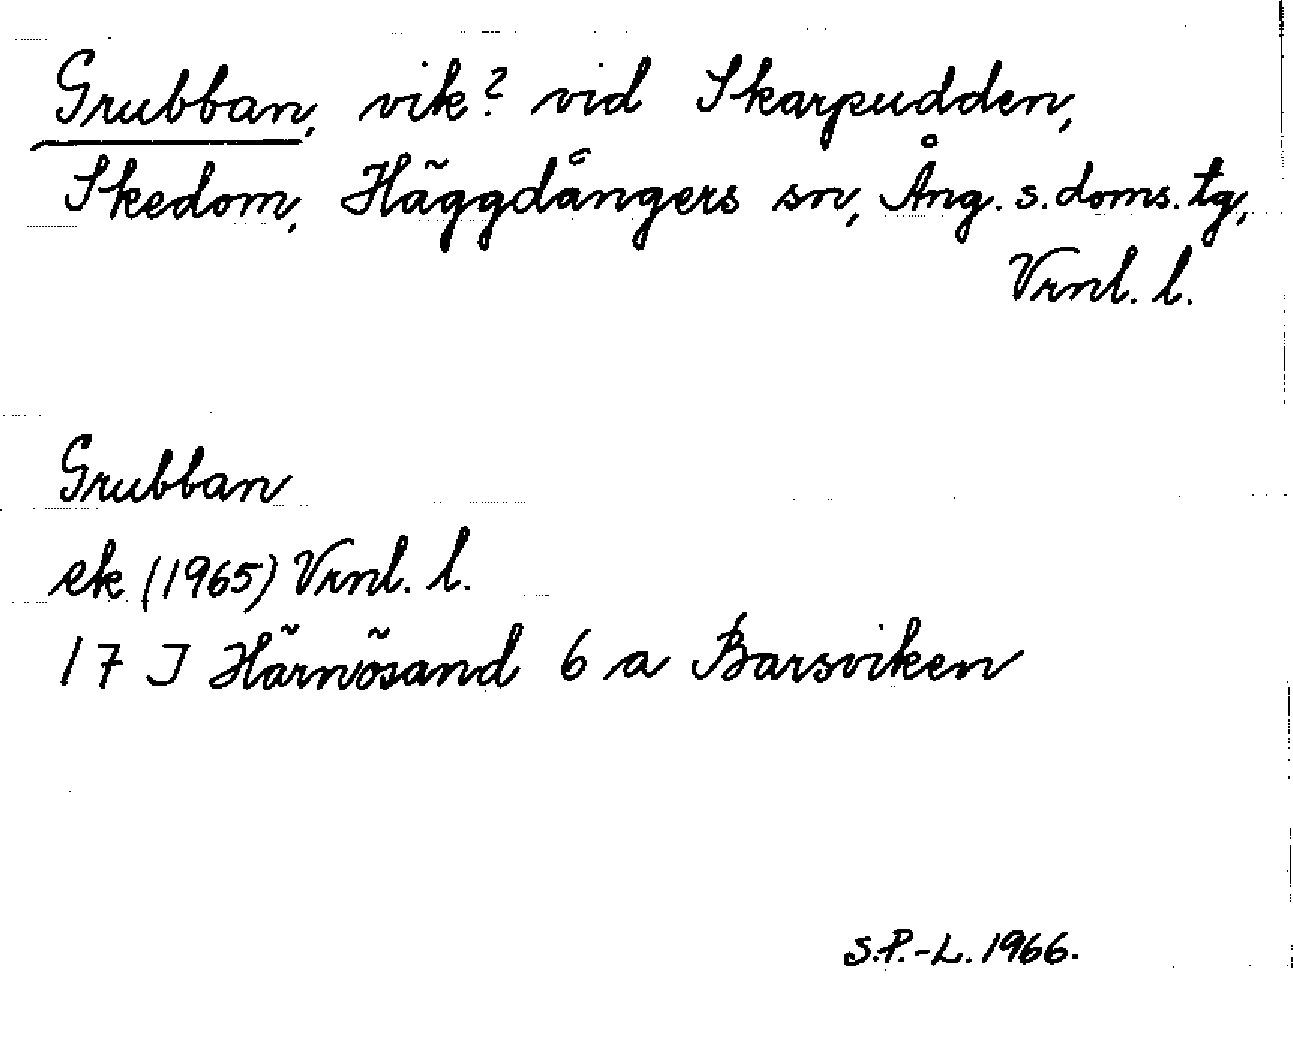 Grubban, vik? vid Skarpudden,
Skedom, Häggdångers sn, Ång. s. doms. tg,
Vrnl. l.
Grubban
ek (1965) Vrnl. l.
17 I Härnösand 6 a Barsviken
S.P.-L. 1966.